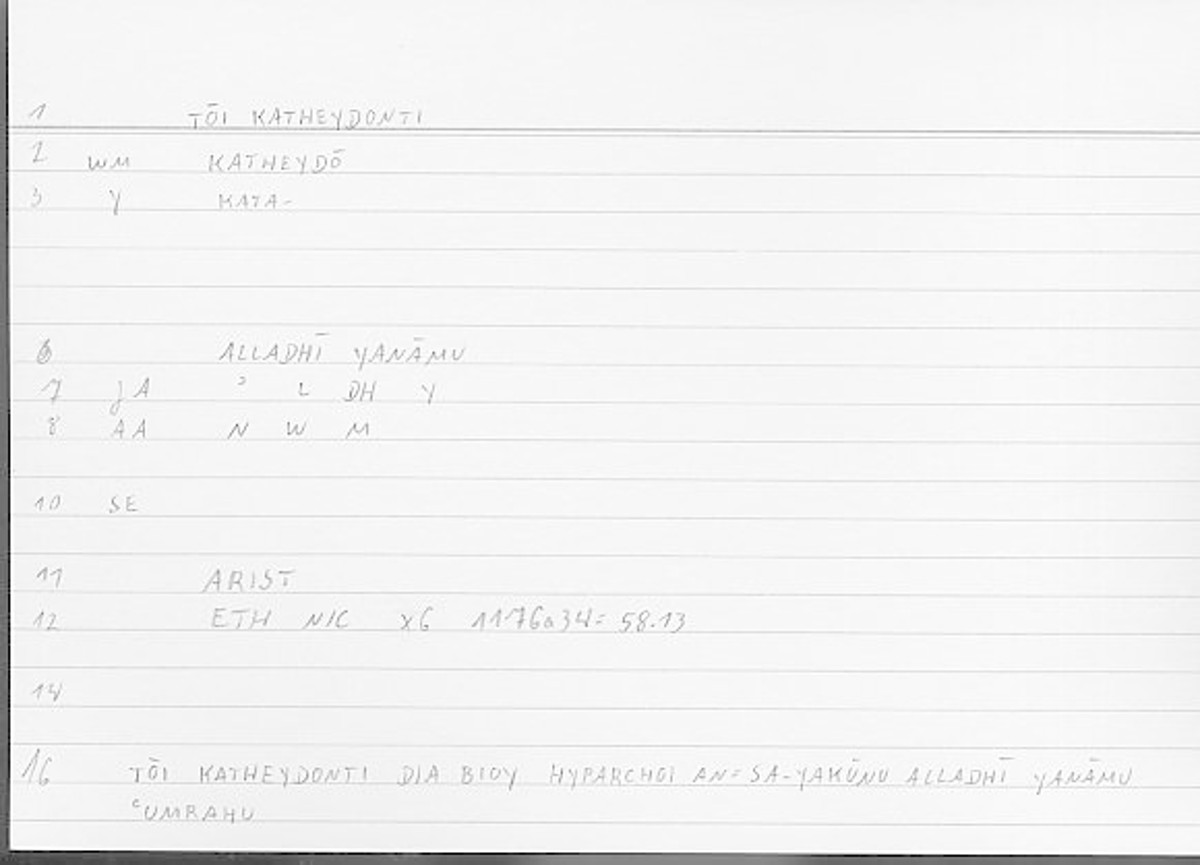 1 TŌI KATHEYDONTI
2 WM KATHEYDŌ
3 Y KATA-
6 ALLADHĪ YANĀMU
7 JA ʾ L DH Y
8 AA N W M
10 SE
11 ARIST
12 ETH NIC X6 1176a34= 58.13
14
16 TŌI KATHEYDONTI DIA BIOY HYPARCHOI AN= SA-YAKŪNU ALLADHĪ YANĀMU
ʿUMRAHU